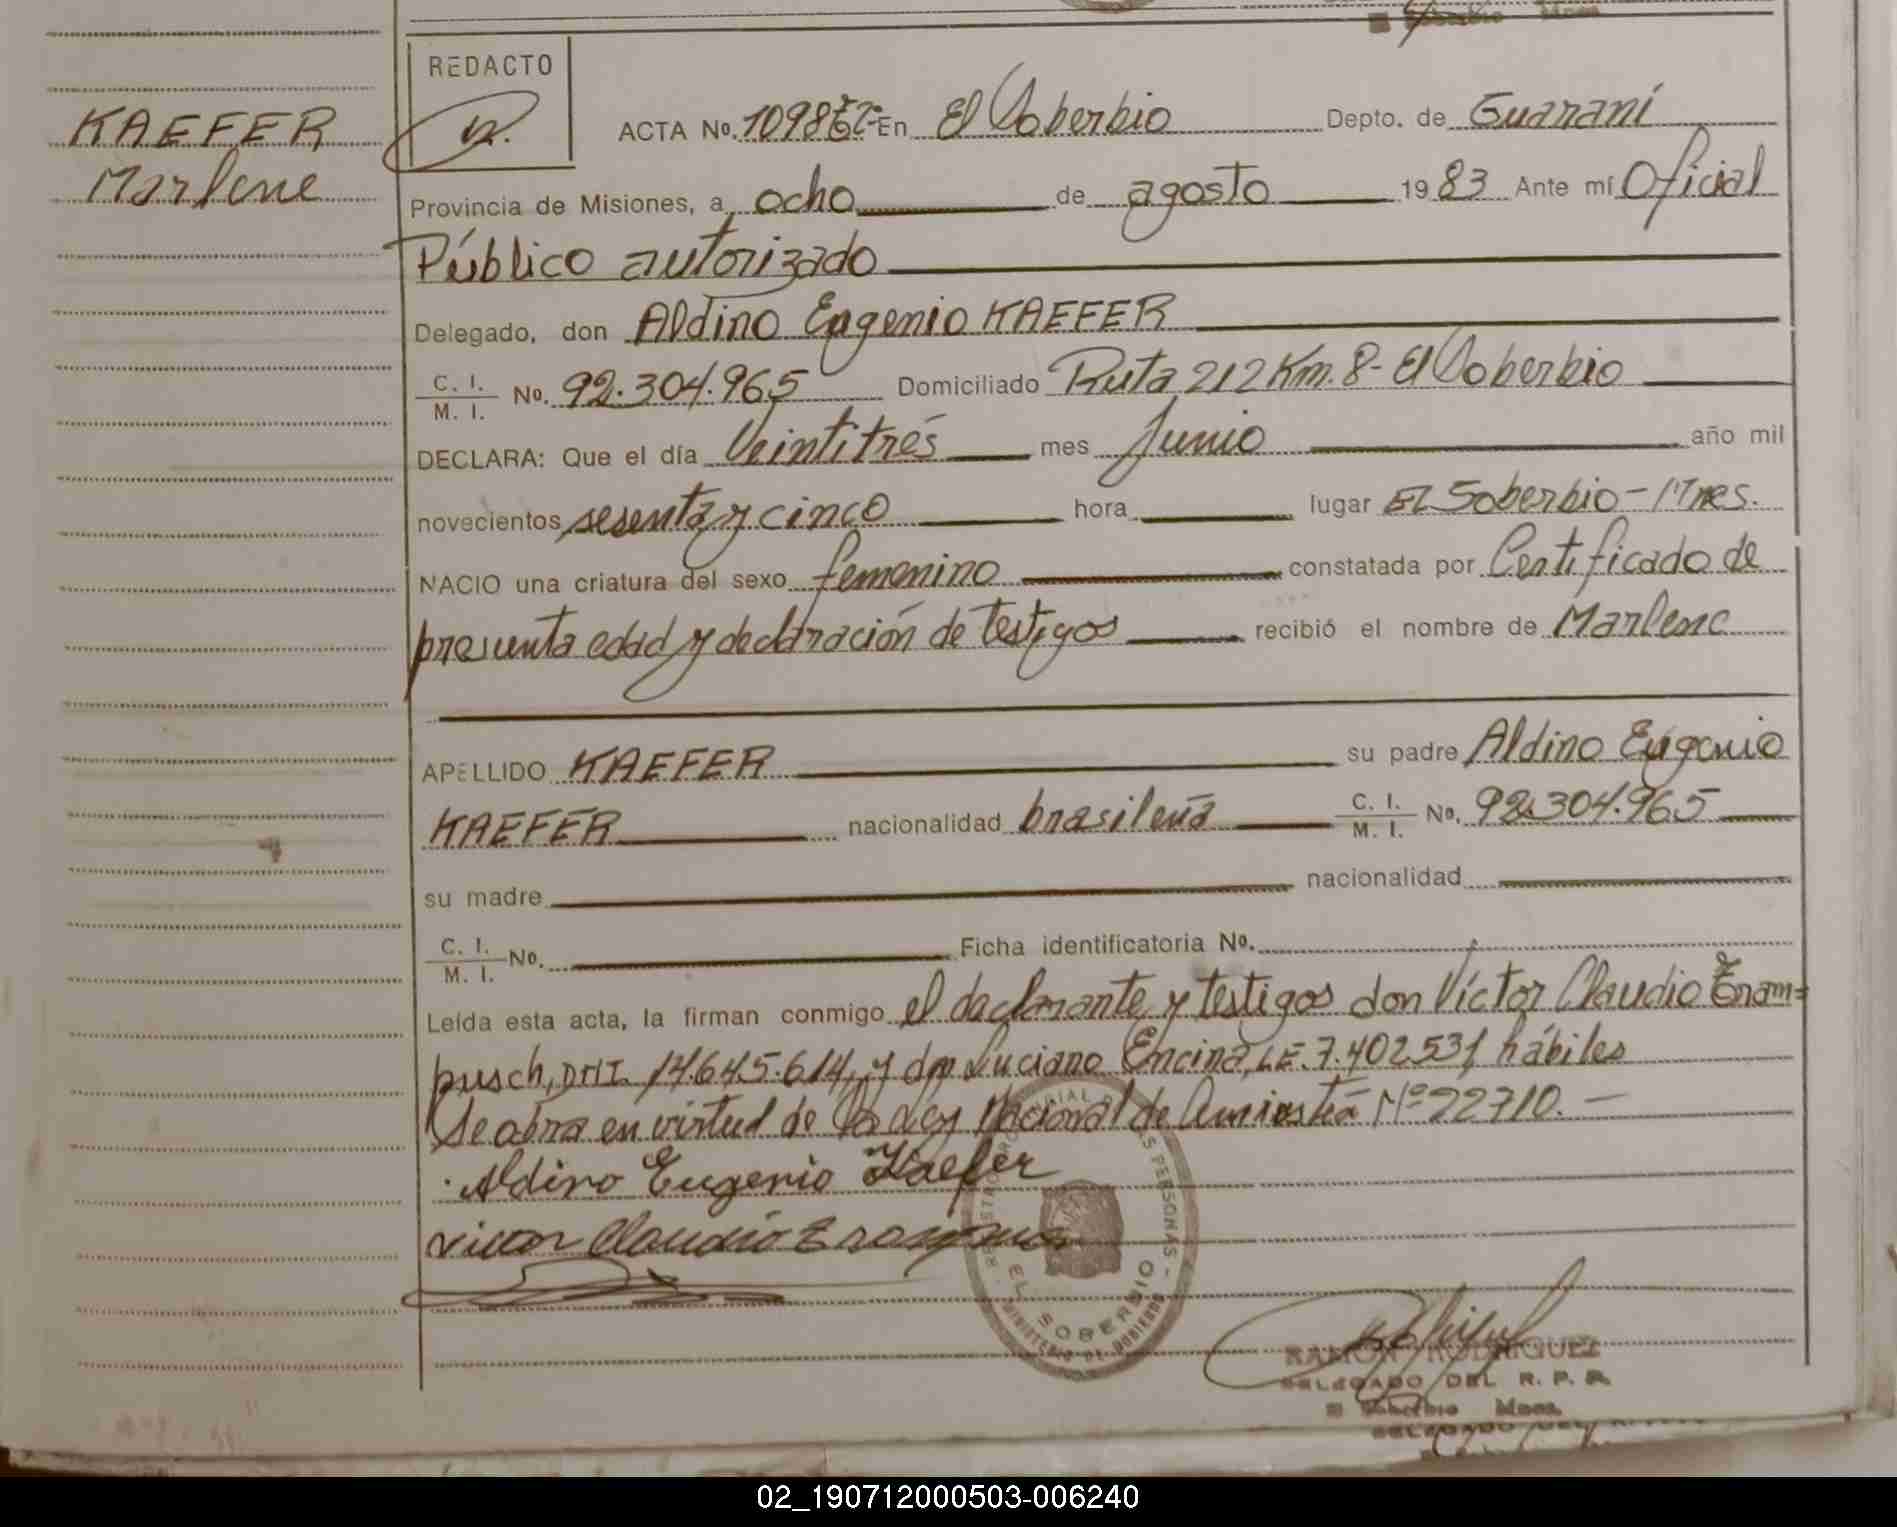 KAEFER
Marlene
REDACTO
ACTA No. 1098 En El Soberbio Depto. de Guaraní
Provincia de Misiones, a ocho de agosto 1983 Ante mí Oficial
Público autorizado
Delegado, don Aldino Eugenio KAEFER
C. I. / M. I. No. 92.304.965 Domiciliado Ruta 212 Km. 8- El Soberbio
DECLARA: Que el día Veintitrés mes Junio año mil
novecientos sesenta y cinco hora lugar El Soberbio - Mnes.
NACIO una criatura del sexo femenino constatada por Certificado de
presunta edad y declaración de testigos recibió el nombre de Marlene
APELLIDO KAEFER su padre Aldino Eugenio
KAEFER nacionalidad brasileña C. I. / M. I. No. 92.304.965
su madre nacionalidad
C. I. / M. I. No. Ficha identificatoria No.
Leída esta acta, la firman conmigo el declarante y testigos don Víctor Claudio Eram=
pusch, DNI. 14.645.614, y don Luciano Encina, L.E. 7.402.531 hábiles
Se abra en virtud de la Ley Nacional de Amnistía Nº 22710. -
Aldino Eugenio Kaefer
Victor Claudio
EL SOBERBIO
MINISTERIO DE GOBIERNO
RAMON RODRIGUEZ
DELEGADO DEL R. P. P.
El Soberbio Mnes.
02_190712000503-006240